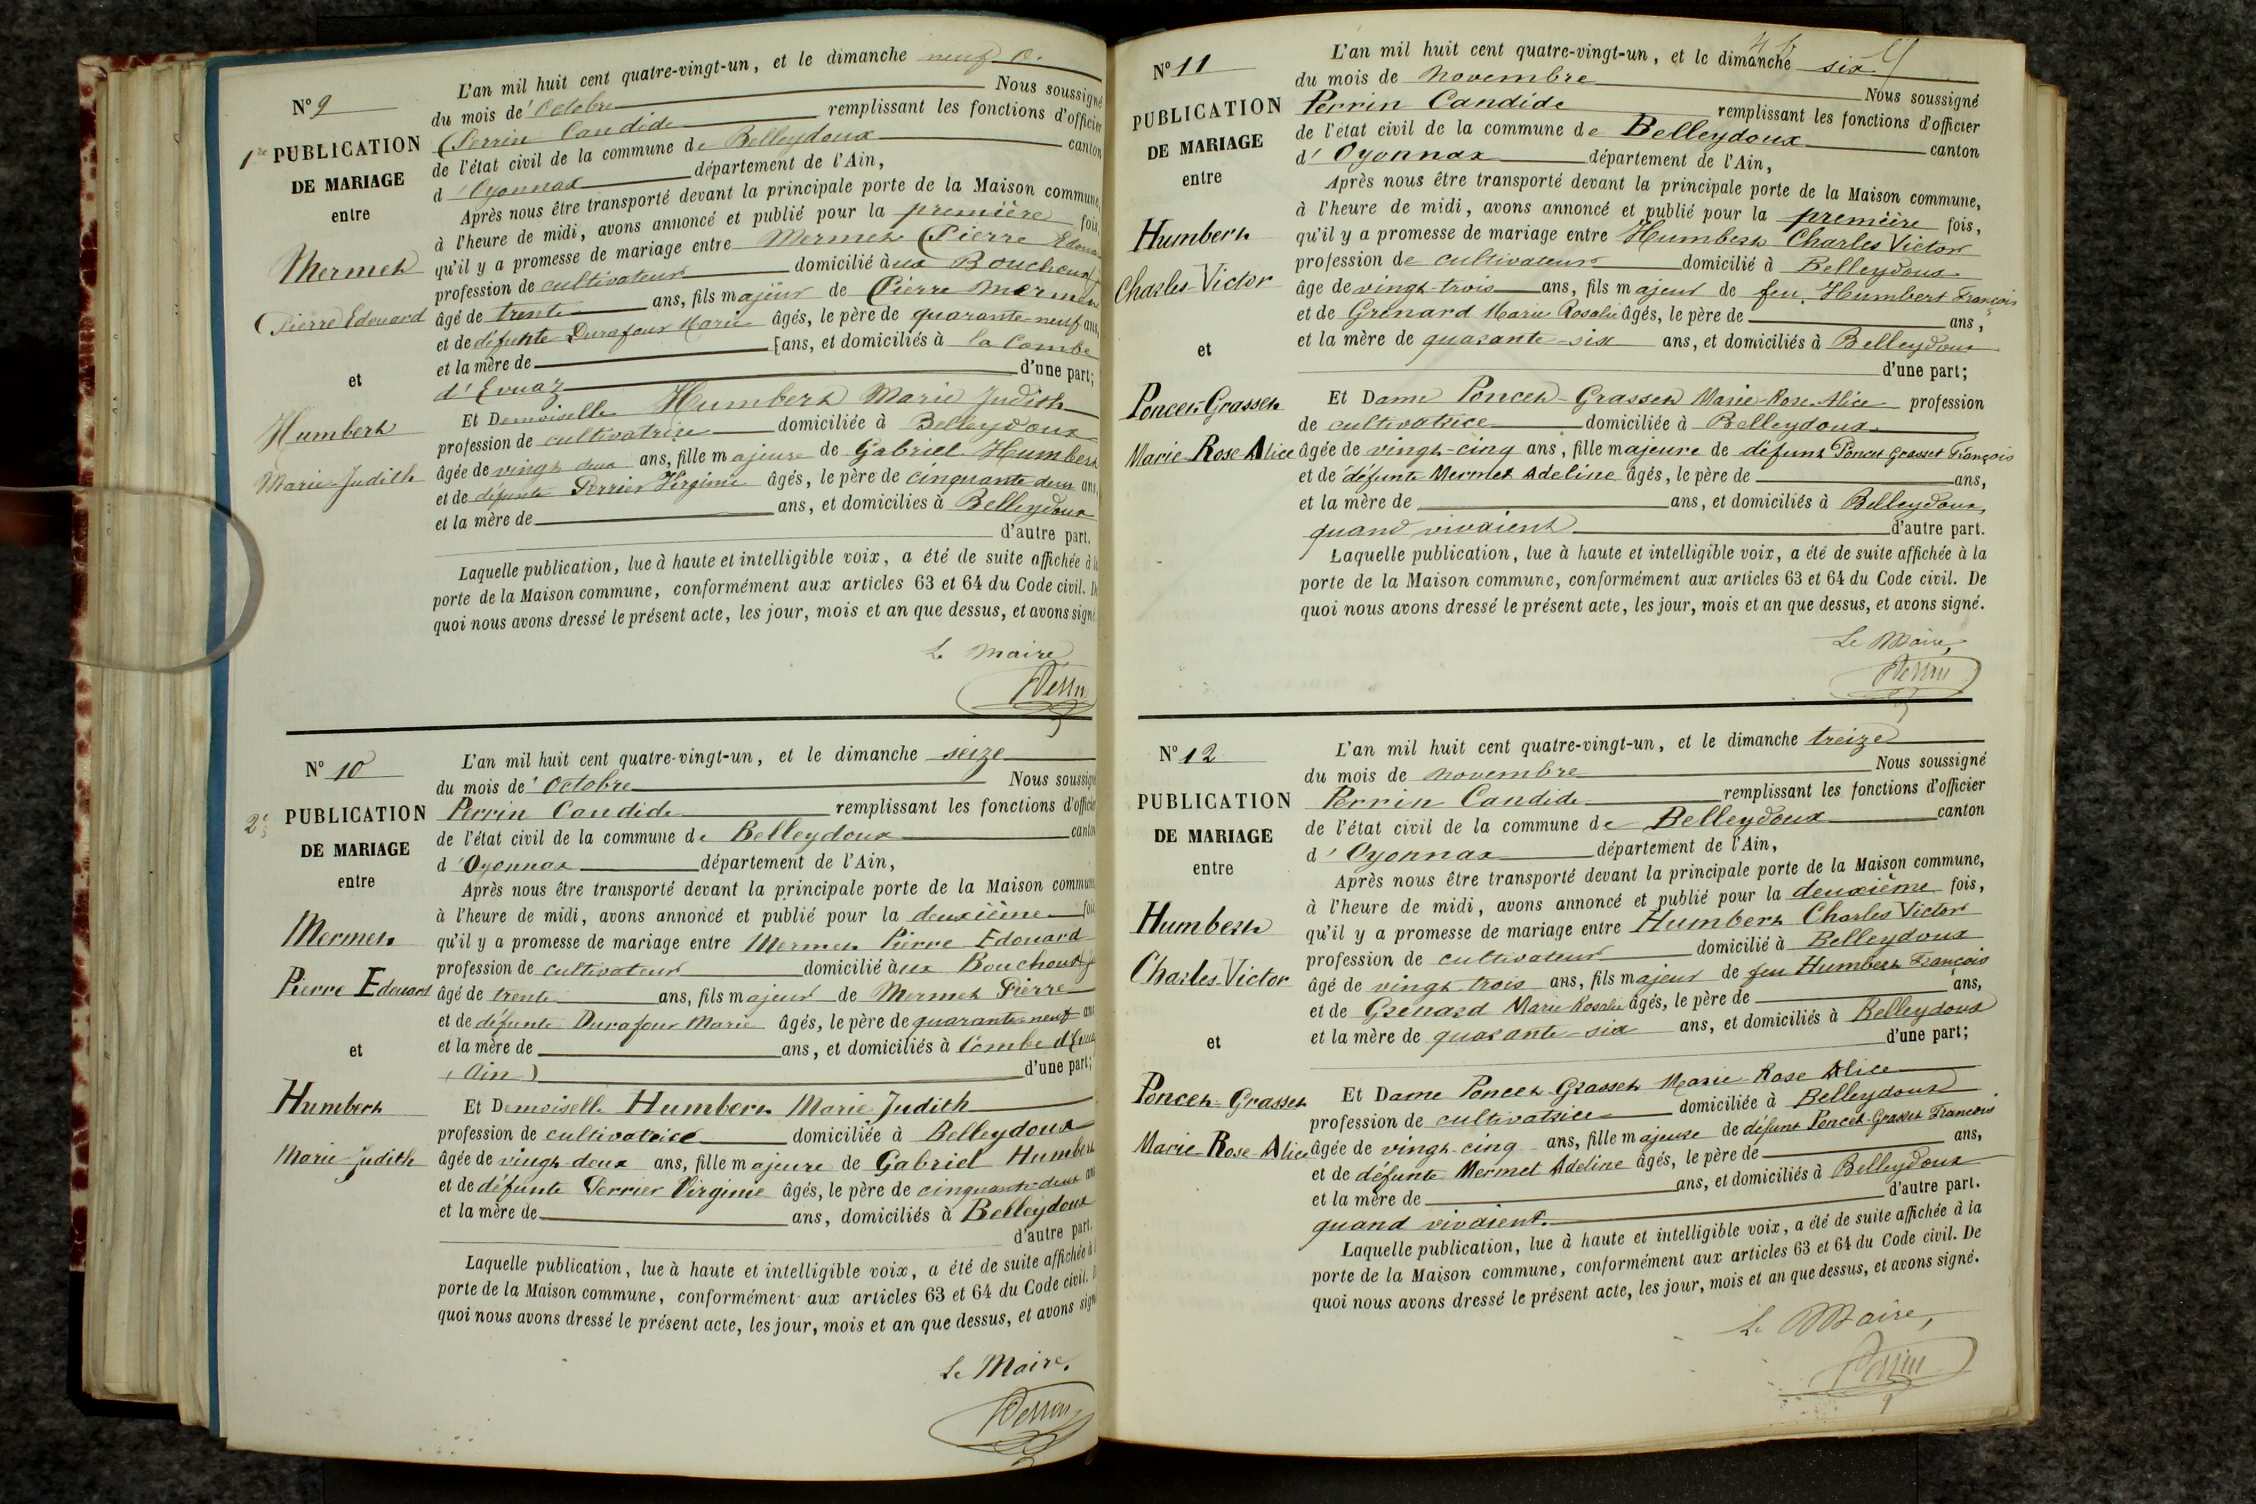 N° 9
1re PUBLICATION
DE MARIAGE
entre
Mermet
Pierre Edouard
et
Humbert
Marie Judith
L'an mil huit cent quatre-vingt-un, et le dimanche neuf
du mois de Octobre Nous soussigné
Perrin Candide remplissant les fonctions d'officier
de l'état civil de la commune de Belleydoux canton
d'Oyonnax département de l'Ain,
Après nous être transporté devant la principale porte de la Maison commune,
à l'heure de midi, avons annoncé et publié pour la première fois,
qu'il y a promesse de mariage entre Mermet Pierre Edouard
profession de cultivateur domicilié à ux Bouchoux
âgé de trente ans, fils majeur de Pierre Mermet
et de défunte Durafour Marie âgés, le père de quarante-neuf ans,
et la mère de [ans, et domiciliés à la Combe
d'Evuaz d'une part;
Et Demoiselle Humbert Marie Judith
profession de cultivatrice domiciliée à Belleydoux
âgée de vingt deux ans, fille majeure de Gabriel Humbert
et de défunte Perrier Virginie âgés, le père de cinquante deux ans,
et la mère de ans, et domiciliés à Belleydoux
d'autre part.
Laquelle publication, lue à haute et intelligible voix, a été de suite affichée à la
porte de la Maison commune, conformément aux articles 63 et 64 du Code civil. De
quoi nous avons dressé le présent acte, les jour, mois et an que dessus, et avons signé.
Le Maire
Perrin
N° 10
2e PUBLICATION
DE MARIAGE
entre
Mermet
Pierre Edouard
et
Humbert
Marie Judith
L'an mil huit cent quatre-vingt-un, et le dimanche seize
du mois de Octobre Nous soussigné
Perrin Candide remplissant les fonctions d'officier
de l'état civil de la commune de Belleydoux canton
d'Oyonnax département de l'Ain,
Après nous être transporté devant la principale porte de la Maison commune,
à l'heure de midi, avons annoncé et publié pour la deuxième fois
qu'il y a promesse de mariage entre Mermet Pierre Edouard
profession de cultivateur domicilié à ux Bouchoux
âgé de trente ans, fils majeur de Mermet Pierre
et de défunte Durafour Marie âgés, le père de quarante-neuf ans
et la mère de ans, et domiciliés à Combe d'Evuaz
(Ain) d'une part;
Et Demoiselle Humbert Marie Judith
profession de cultivatrice domiciliée à Belleydoux
âgée de vingt-deux ans, fille majeure de Gabriel Humbert
et de défunte Perrier Virginie âgés, le père de cinquante-deux ans
et la mère de ans, domiciliés à Belleydoux
d'autre part.
Laquelle publication, lue à haute et intelligible voix, a été de suite affichée à la
porte de la Maison commune, conformément aux articles 63 et 64 du Code civil. De
quoi nous avons dressé le présent acte, les jour, mois et an que dessus, et avons signé
Le Maire.
Perrin
N° 11
PUBLICATION
DE MARIAGE
entre
Humbert
Charles Victor
et
Poncet-Grasset
Marie Rose Alice
L'an mil huit cent quatre-vingt-un, et le dimanche six
du mois de Novembre Nous soussigné
Perrin Candide remplissant les fonctions d'officier
de l'état civil de la commune de Belleydoux canton
d'Oyonnax département de l'Ain,
Après nous être transporté devant la principale porte de la Maison commune,
à l'heure de midi, avons annoncé et publié pour la première fois,
qu'il y a promesse de mariage entre Humbert Charles Victor
profession de cultivateur domicilié à Belleydoux
âge de vingt-trois ans, fils majeur de feu Humbert François
et de Grenard Marie Rosalie âgés, le père de ans,
et la mère de quarante-six ans, et domiciliés à Belleydoux
d'une part;
Et Dame Poncet-Grasset Marie-Rose-Alice profession
de cultivatrice domiciliée à Belleydoux
âgée de vingt-cinq ans, fille majeure de défunt Poncet Grasset François
et de défunte Mermet Adeline âgés, le père de ans,
et la mère de ans, et domiciliés à Belleydoux,
quand vivaient d'autre part.
Laquelle publication, lue à haute et intelligible voix, a été de suite affichée à la
porte de la Maison commune, conformément aux articles 63 et 64 du Code civil. De
quoi nous avons dressé le présent acte, les jour, mois et an que dessus, et avons signé.
Le Maire,
Perrin
N° 12
PUBLICATION
DE MARIAGE
entre
Humbert
Charles Victor
et
Poncet-Grasset
Marie-Rose Alice
L'an mil huit cent quatre-vingt-un, et le dimanche treize
du mois de Novembre Nous soussigné
Perrin Candide remplissant les fonctions d'officier
de l'état civil de la commune de Belleydoux canton
d'Oyonnax département de l'Ain,
Après nous être transporté devant la principale porte de la Maison commune,
à l'heure de midi, avons annoncé et publié pour la deuxième fois,
qu'il y a promesse de mariage entre Humbert Charles Victor
profession de cultivateur domicilié à Belleydoux
âgé de vingt trois ans, fils majeur de feu Humbert François
et de Grenard Marie Rosalie âgés, le père de ans,
et la mère de quarante-six ans, et domiciliés à Belleydoux
d'une part;
Et Dame Poncet-Grasset Marie-Rose Alice
profession de cultivatrice domiciliée à Belleydoux
âgée de vingt-cinq ans, fille majeure de défunt Poncet-Grasset François
et de défunte Mermet Adeline âgés, le père de ans,
et la mère de ans, et domiciliés à Belleydoux
quand vivaient. d'autre part.
Laquelle publication, lue à haute et intelligible voix, a été de suite affichée à la
porte de la Maison commune, conformément aux articles 63 et 64 du Code civil. De
quoi nous avons dressé le présent acte, les jour, mois et an que dessus, et avons signé.
Le Maire,
Perrin